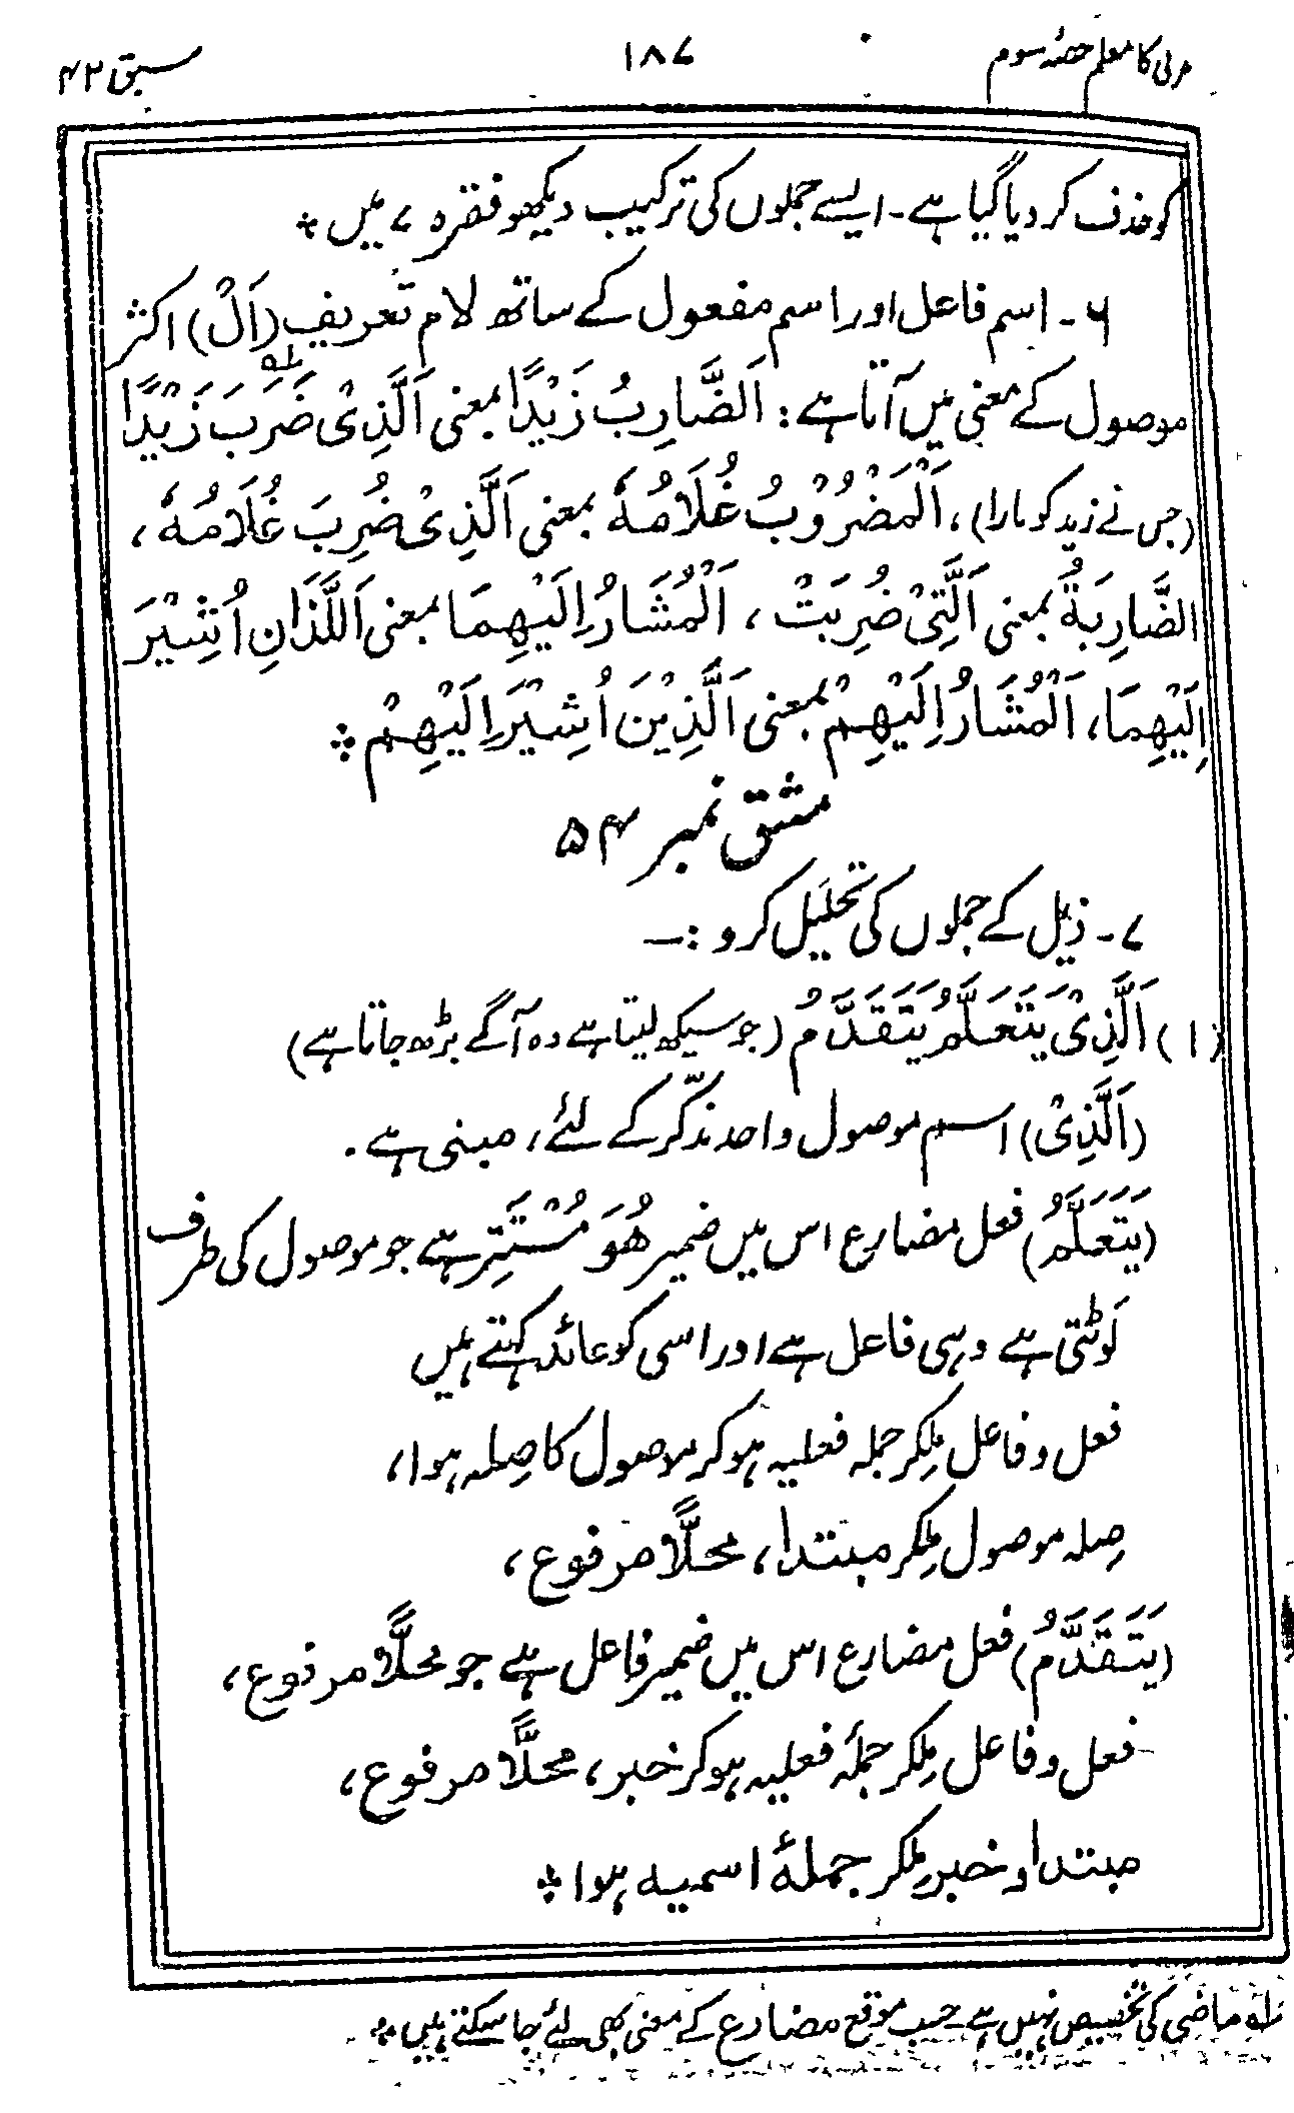 عربی کا معلم حصّہ سوم ۱۸۷ سبق ۴۲
کو حذف کر دیا گیا ہے۔ ایسے جملوں کی ترکیب دیکھو فقرہ ۷ میں *
۶۔ اسم فاعل اور اسم مفعول کے ساتھ لام تعریف (اَلْ) اکثر
موصول کے معنی میں آتا ہے: اَلضَّارِبُ زَیْدًا بمعنی اَلَّذِیْ ضَرَبَ ؎۱ زَیْدًا
(جس نے زید کو مارا)، اَلْمَضْرُوْبُ غُلَامُهٗ بمعنی اَلَّذِیْ ضُرِبَ غُلَامُهٗ،
الضَّارِبَةُ بمعنی اَلَّتِیْ ضُرِبَتْ، اَلْمُشَارُ اِلَیْهِمَا بمعنی اَللَّذَانِ اُشِیْرَ
اِلَیْهِمَا، اَلْمُشَارُ اِلَیْهِمْ بمعنی اَلَّذِیْنَ اُشِیْرَ اِلَیْهِمْ *
مشق نمبر ۵۴
۷۔ ذیل کے جملوں کی تحلیل کرو :۔
(۱) اَلَّذِیْ یَتَعَلَّمُ یَتَقَدَّمُ (جو سیکھ لیتا ہے وہ آگے بڑھ جاتا ہے)
(اَلَّذِیْ) اسم موصول واحد مذکّر کے لئے، مبنی ہے۔
(یَتَعَلَّمُ) فعل مضارع اس میں ضمیر هُوَ مُسْتَتِر ہے جو موصول کی طرف
لَوٹتی ہے وہی فاعل ہے اور اسی کو عائد کہتے ہیں
فعل و فاعل مِلکر جملہ فعلیہ ہو کر موصول کا صِلہ ہوا،
صِلہ موصول مِلکر مبتدا، محلًّا مرفوع،
(یَتَقَدَّمُ) فعل مضارع اس میں ضمیر فاعل ہے جو محلًّا مرفوع،
فعل و فاعل مِلکر جملۂ فعلیہ ہو کر خبر، محلًّا مرفوع،
مبتدا و خبر مِلکر جملۂ اسمیہ ہوا *
؎۱ ماضی کی تخصیص نہیں ہے حسب موقع مضارع کے معنی بھی لئے جا سکتے ہیں *